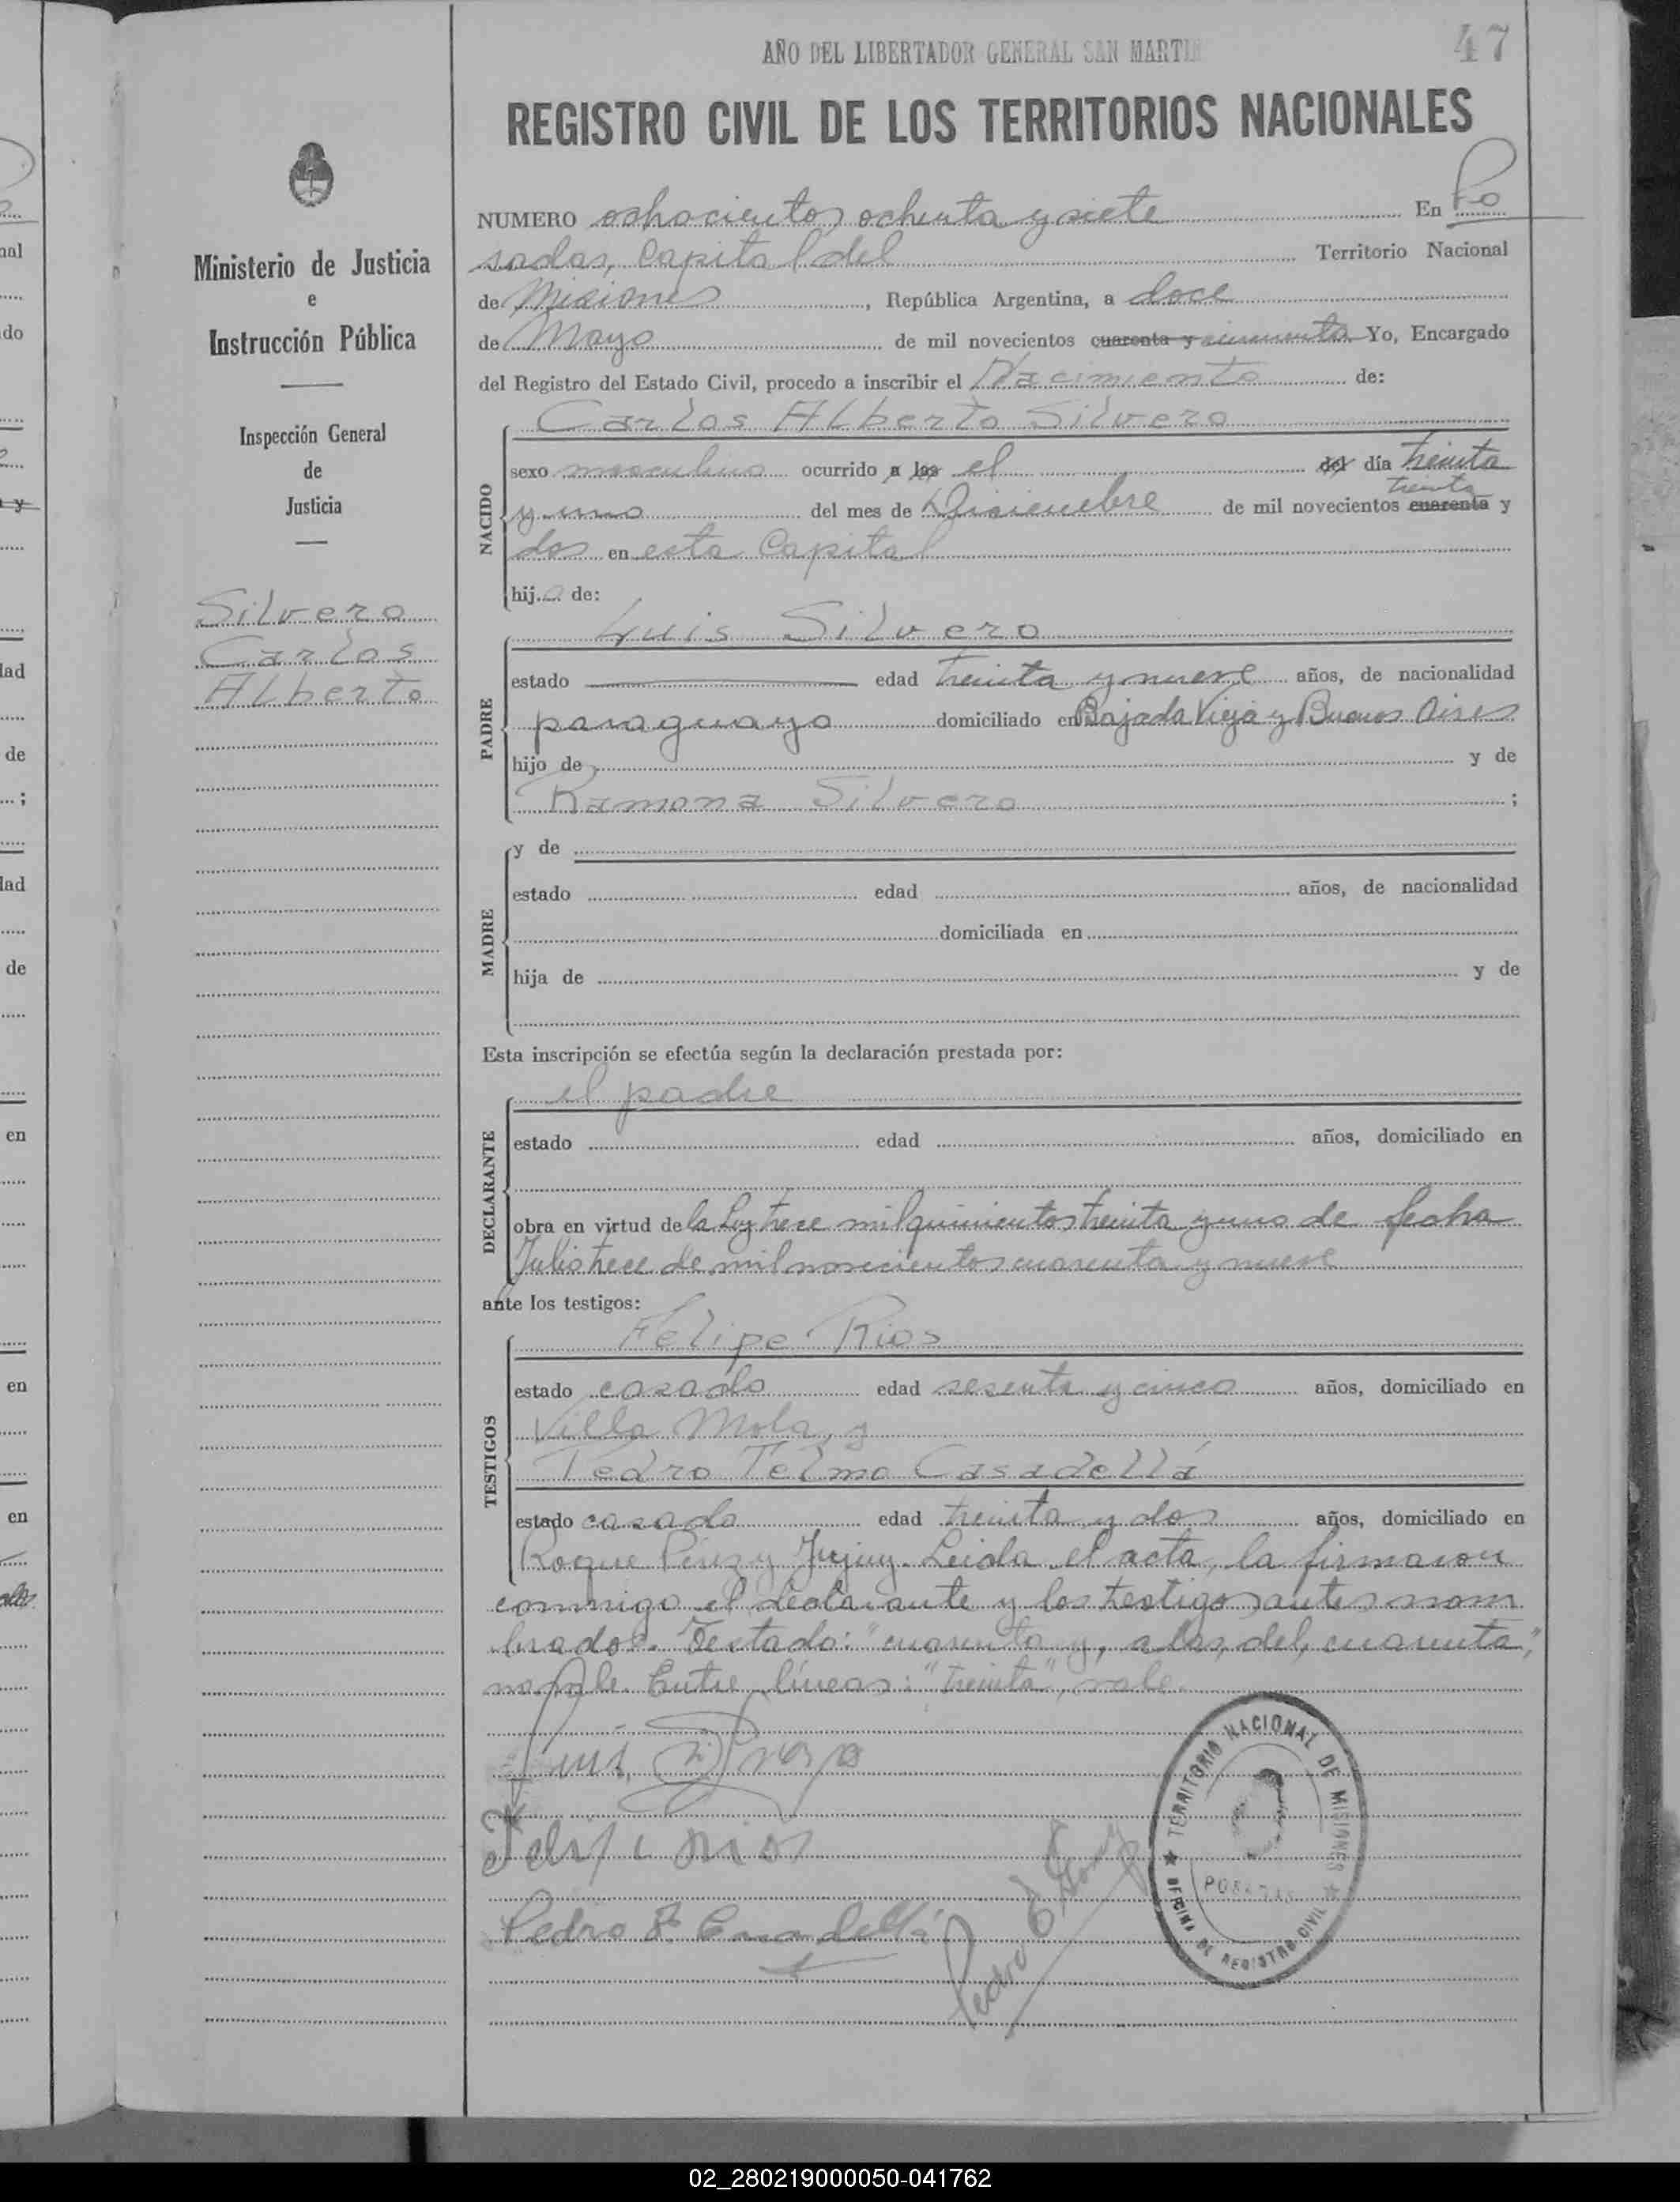 AÑO DEL LIBERTADOR GENERAL SAN MARTIN
47
REGISTRO CIVIL DE LOS TERRITORIOS NACIONALES
Ministerio de Justicia
e
Instrucción Pública
Inspección General
de
Justicia
Silvero
Carlos
Alberto
NUMERO ochocientos ochenta y siete En Po
sadas, Capital del Territorio Nacional
de Misiones, República Argentina, a doce
de Mayo de mil novecientos cuarenta y cincuenta Yo, Encargado
del Registro del Estado Civil, procedo a inscribir el Nacimiento de:
Carlos Alberto Silvero
NACIDO
sexo masculino ocurrido a las el del día treinta
treinta
y uno del mes de Diciembre de mil novecientos cuarenta y
dos en esta Capital
hijo de:
PADRE
Luis Silvero
estado edad treinta y nueve años, de nacionalidad
paraguayo domiciliado en Bajada Vieja y Buenos Aires
hijo de y de
Ramona Silvero ;
MADRE
y de
estado edad años, de nacionalidad
domiciliada en
hija de y de
Esta inscripción se efectúa según la declaración prestada por:
DECLARANTE
el padre
estado edad años, domiciliado en
obra en virtud de la Ley trece mil quinientos treinta y uno de fecha
Julio trece de mil novecientos cuarenta y nueve
ante los testigos:
TESTIGOS
Felipe Rios
estado casado edad sesenta y cinco años, domiciliado en
Villa Mola, y
Pedro Telmo Casadellá
estado casado edad treinta y dos años, domiciliado en
Roque Pérez y Jujuy. Leida el acta, la firmaron
conmigo el declarante y los testigos antes nom
brados. Testado: "cuarenta y, a las, del, cuarenta",
no vale. Entre líneas: "treinta", vale.
Luis Silvero
Felipe Rios
Pedro T. Casadellá
Pedro
TERRITORIO NACIONAL DE MISIONES
POSADAS
OFICINA DE REGISTRO CIVIL
02_280219000050-041762